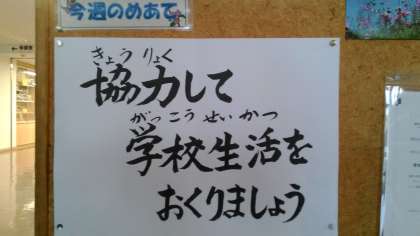 今週のめあて
きょう りょく
協力して
がっこう せい かつ
学校生活を
おくりましょう